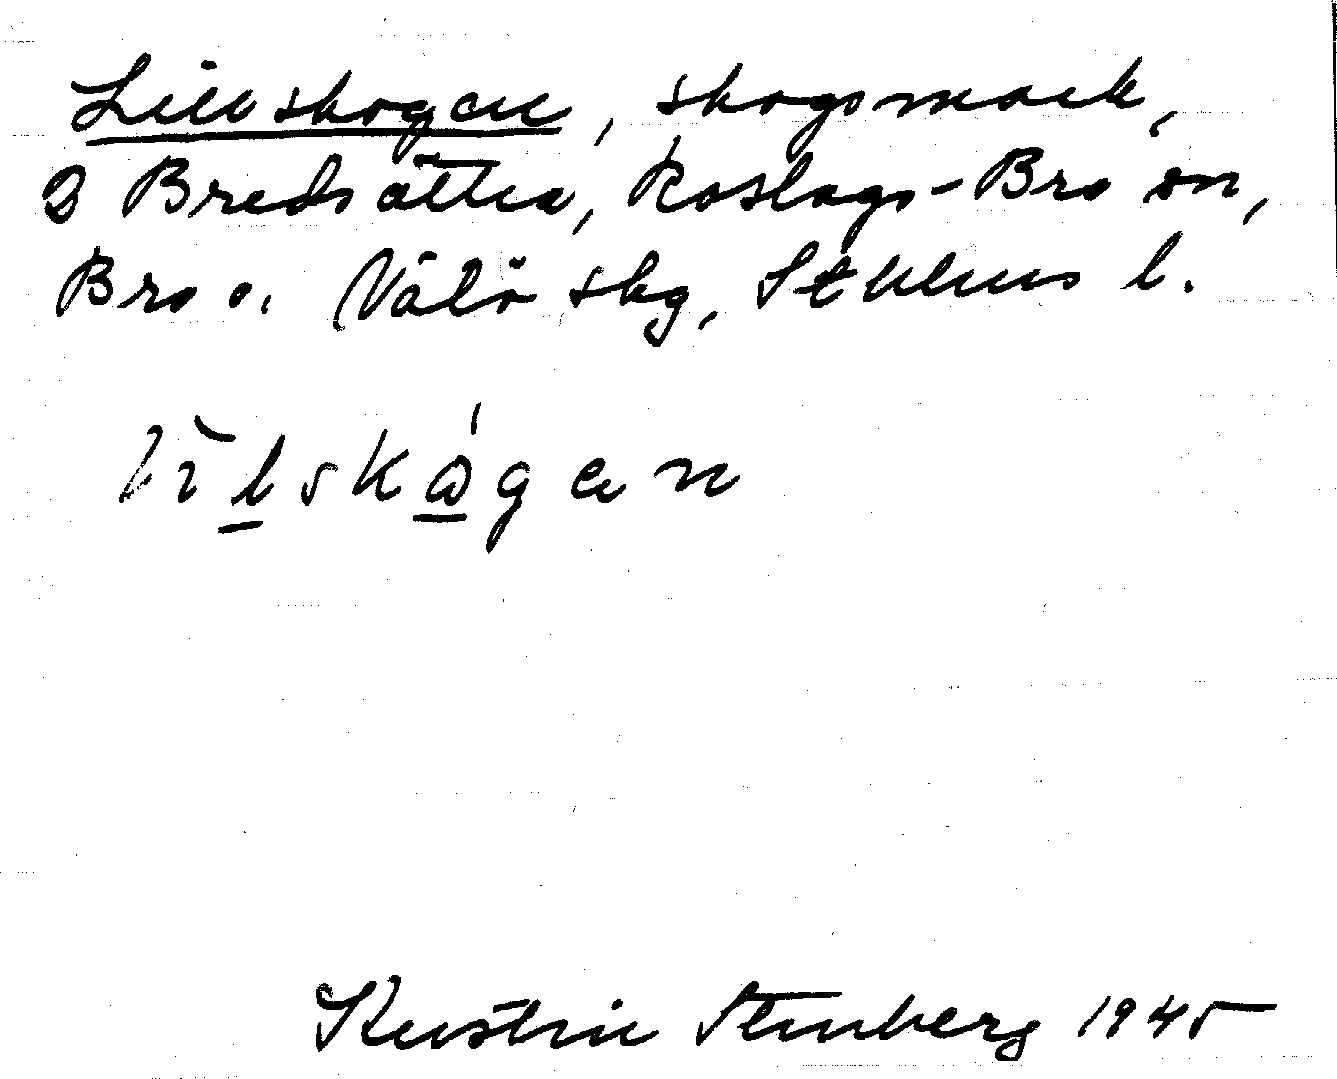 Lillskogen, skogsmark,
D Bredsättra, Roslags-Bro sn,
Bro o. Välö skg, Sthlms l.
Kerstin Stenberg 1945